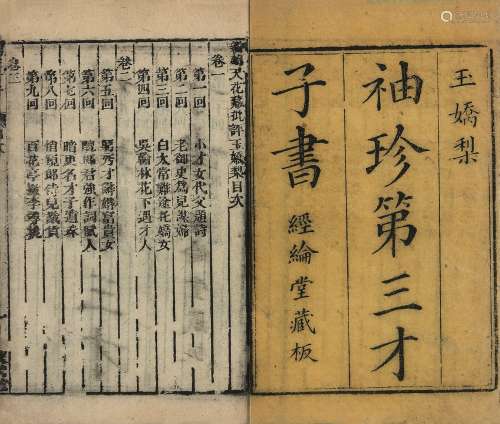 玉嬌梨
袖珍第三才
子書
經綸堂藏板
天花藏批評玉嬌梨目次
卷一
第一回 小才女代父題詩
第二回 老御史為兒謀婦
第三回 白太常難途托嬌女
第四回 吳翰林花下遇才人
卷二
第五回 窮秀才辭婚富貴女
第六回 醜郎君強作詞賦人
第七回 暗更名才子遺珠
第八回 悄窺郎侍兒識貨
第九回 百花亭撇李尋桃
卷三